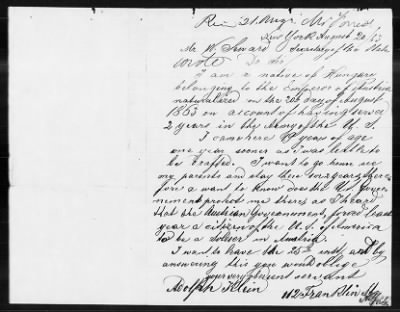 Rec 21 Augt. Mr
New York August 20/63
Mr W. Seward Secretary of the State
wrote Dr Sir
I am a native of Hungary
belonging to the Emperor of Austria
naturalized on the 20d day of August
1863 on account of having served
2 years in the Army of the U. S.
I came here years of age
one year sooner as I was to
be drafted. I want to go home see
my parents and stay there years there
fore a want to know does the U.S. Gover
nement protect me there as I heard
that the Austrian Government forced last
year a citizen of the U. S. of America
to be a soldier in Austria.
I want to leave the 25th inst. and by
answering this you would oblige
your very obedient servant
Adolph Klein 112 Franklin St